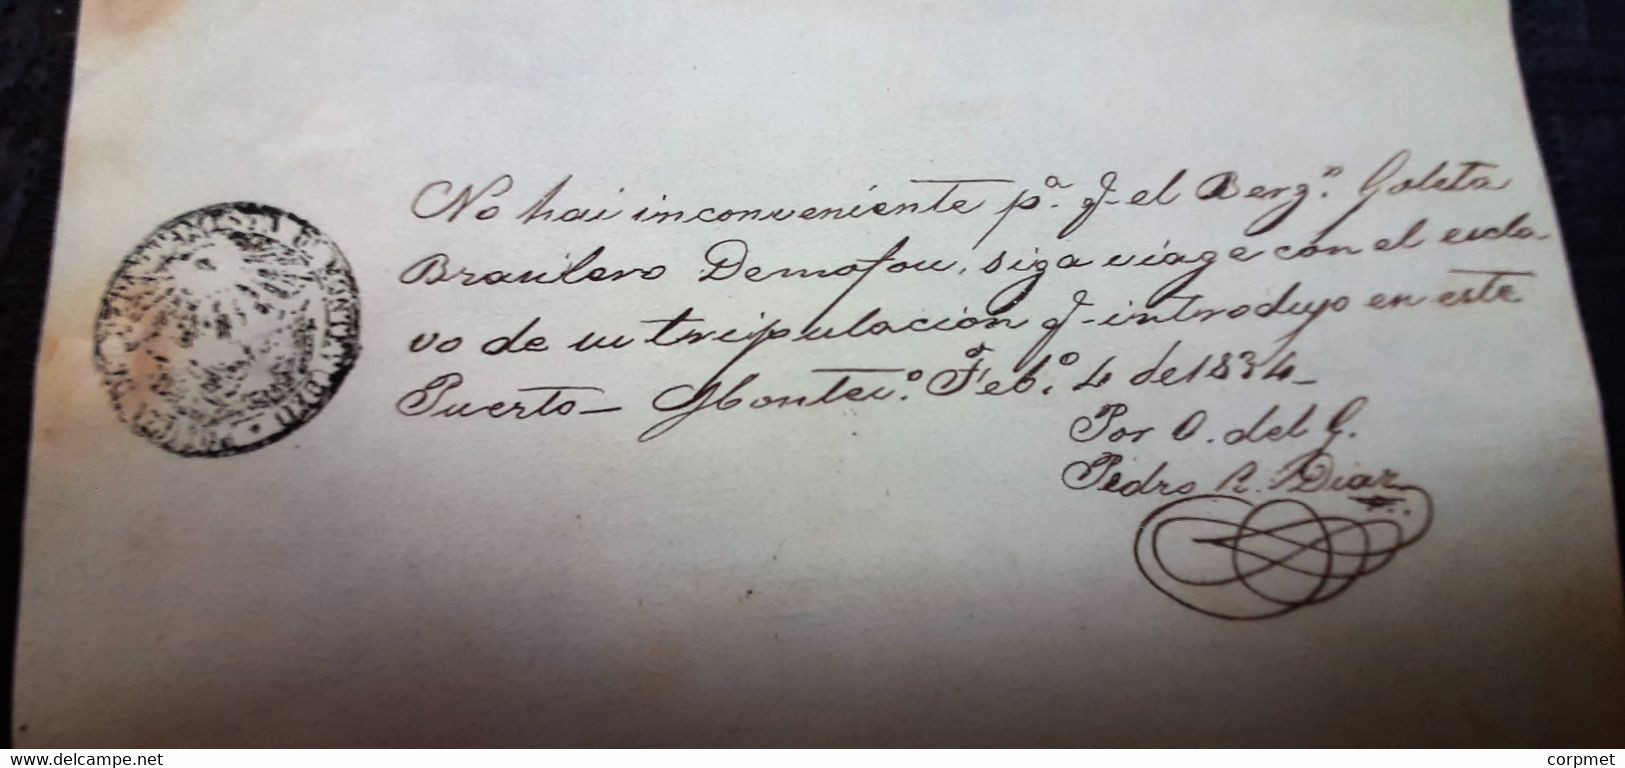 No hai inconveniente pª. q̃ el Bergⁿ. Goleta
Brasilero Demofou, siga viage con el escla-
vo de su tripulacion q̃ introdujo en este
Puerto – Montevº. Febº. 4 de 1834 –
Por O. del G.
Pedro R. Diaz
www.delcampe.net
corpmet